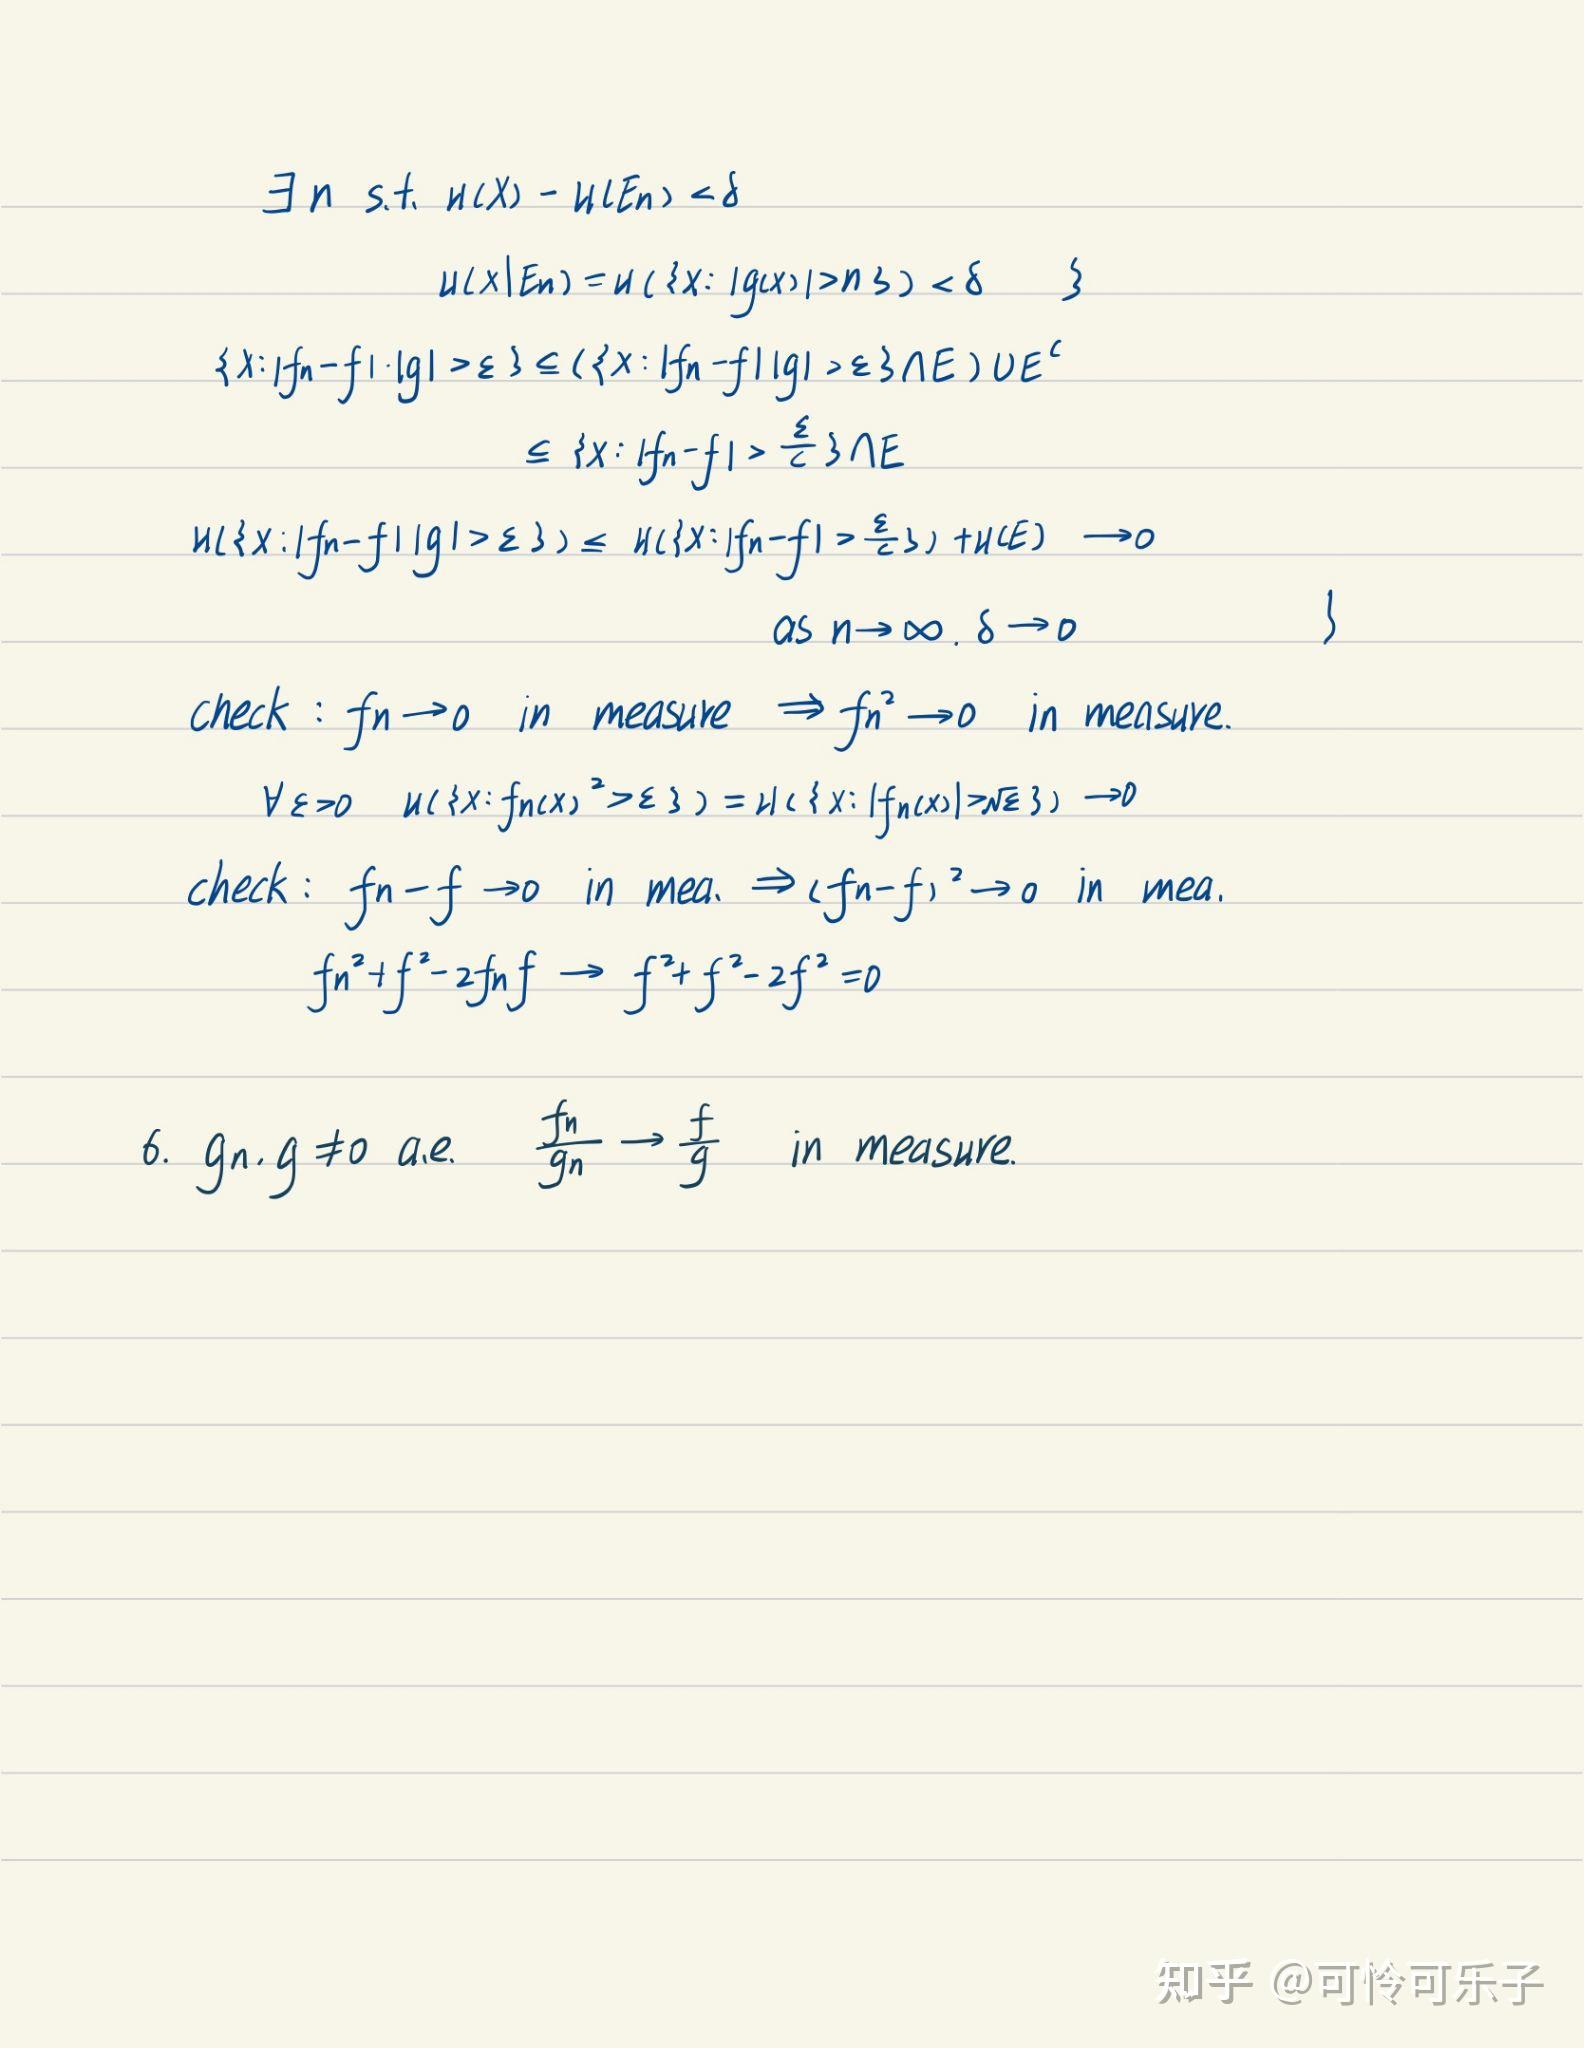 ∃ n s.t. μ(X) - μ(En) < δ
μ(X|En) = μ({x: |g(x)| > n}) < δ }
{x: |fn - f|·|g| > ε} ≤ ({x: |fn - f||g| > ε} ∩ E) ∪ E^c
≤ {x: |fn - f| > ε/c} ∩ E
μ({x: |fn - f||g| > ε}) ≤ μ({x: |fn - f| > ε/c}) + μ(E) → 0
as n → ∞. δ → 0 }
check: fn → 0 in measure ⇒ fn² → 0 in measure.
∀ ε>0 μ({x: fn(x)² > ε}) = μ({x: |fn(x)| > √ε}) → 0
check: fn - f → 0 in mea. ⇒ (fn - f)² → 0 in mea.
fn² + f² - 2fn f → f² + f² - 2f² = 0
6. gn, g ≠ 0 a.e. fn/gn → f/g in measure.
知乎 @可怜可乐子